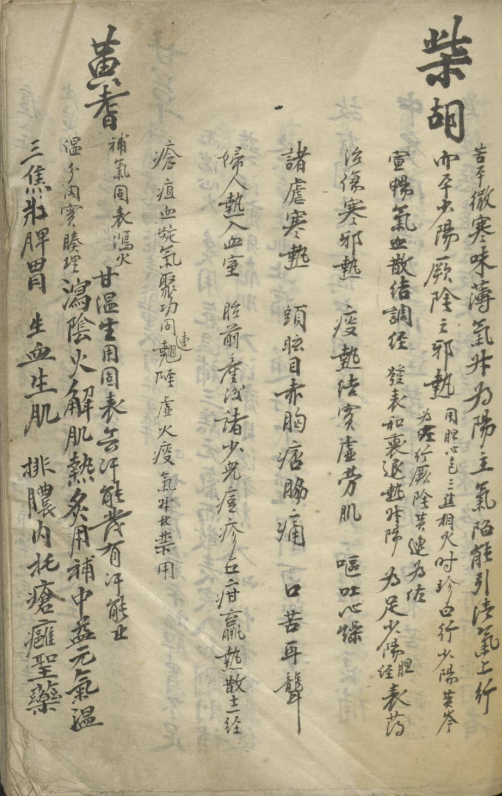 柴胡
苦平微寒味薄氣升為陽主氣陷能引清氣上行
而平少陽厥陰之邪熱
用胆心包三焦相火时珍曰行少陽黃岑
為佐行厥陰黃連為佐
宣暢氣血散结調经 發表和裏退熱升陽 為足少陽胆经表药
治傷寒邪熱 瘧熱结實虛劳肌 嘔吐心燥
諸瘧寒熱 頭眩目赤胸痞脇痛 口苦耳聾
婦人熱入血室 胎前產後諸 少兒痘疹五疳羸熱散十二经
瘡疽血凝氣聚功同連翹 陰虛火瘦氣升者禁用
黃耆
補氣固表瀉火
溫分肉實腠理
甘溫生用固表無汗能發有汗能止
瀉陰火解肌熱炙用補中益元氣溫
三焦壯脾胃 生血生肌 排膿內托瘡癰聖藥